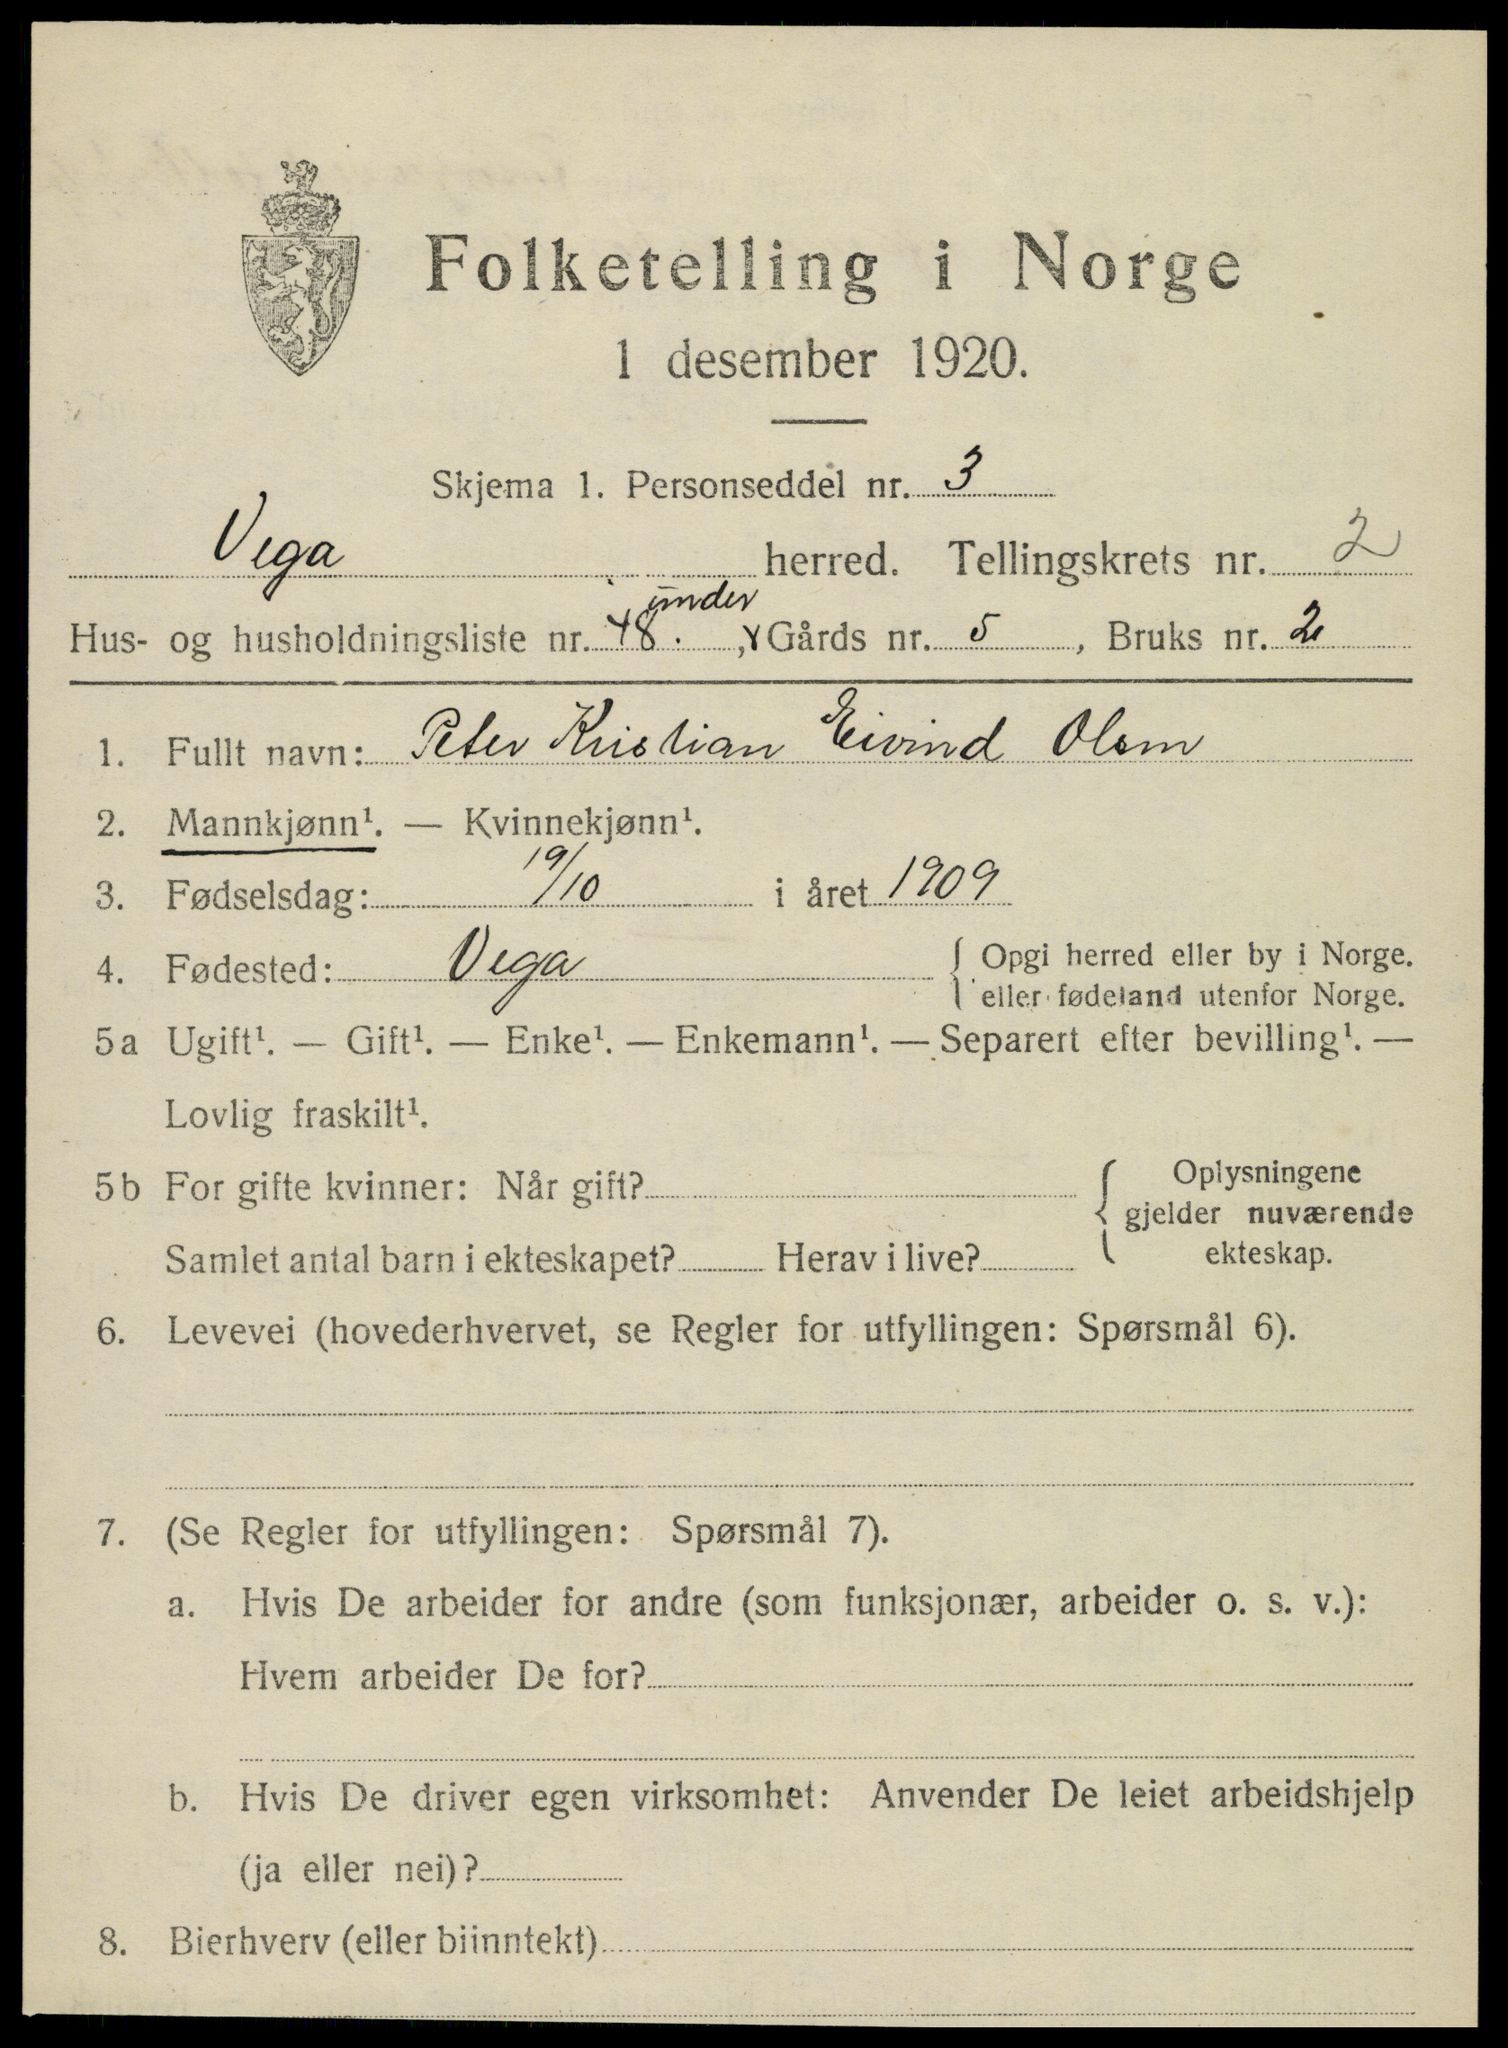 Folketelling i Norge
1 desember 1920.
Skjema 1. Personseddel nr. 3
Vega herred. Tellingskrets nr. 2
under
Hus- og husholdningsliste nr. 48. , Gårds nr. 5, Bruks nr. 2
1. Fullt navn: Peter Kristian Eivind Olsen
2. Mannkjønn¹. — Kvinnekjønn¹.
3. Fødselsdag: 19/10 i året 1909
4. Fødested: Vega { Opgi herred eller by i Norge.
eller fødeland utenfor Norge.
5a Ugift¹. — Gift¹. — Enke¹. — Enkemann¹. — Separert efter bevilling¹. —
Lovlig fraskilt¹.
5b For gifte kvinner: Når gift? { Oplysningene
gjelder nuværende
Samlet antal barn i ekteskapet? Herav i live? ekteskap.
6. Levevei (hovederhvervet, se Regler for utfyllingen: Spørsmål 6).
7. (Se Regler for utfyllingen: Spørsmål 7).
a. Hvis De arbeider for andre (som funksjonær, arbeider o. s. v.):
Hvem arbeider De for?
b. Hvis De driver egen virksomhet: Anvender De leiet arbeidshjelp
(ja eller nei)?
8. Bierhverv (eller biinntekt)